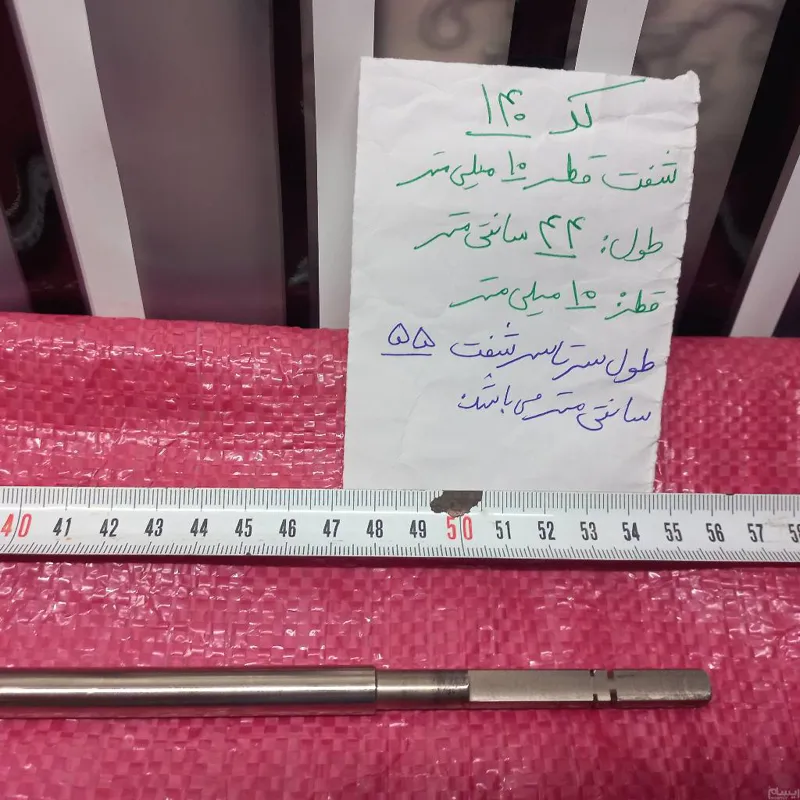 کد ۱۴۰
شفت قطر ۱۰ میلی متر
طول: ۴۴ سانتی متر
قطر: ۱۰ میلی متر
طول سرتاسر شفت ۵۵
سانتی متر می باشد
40 41 42 43 44 45 46 47 48 49 50 51 52 53 54 55 56 57 58
باسلام